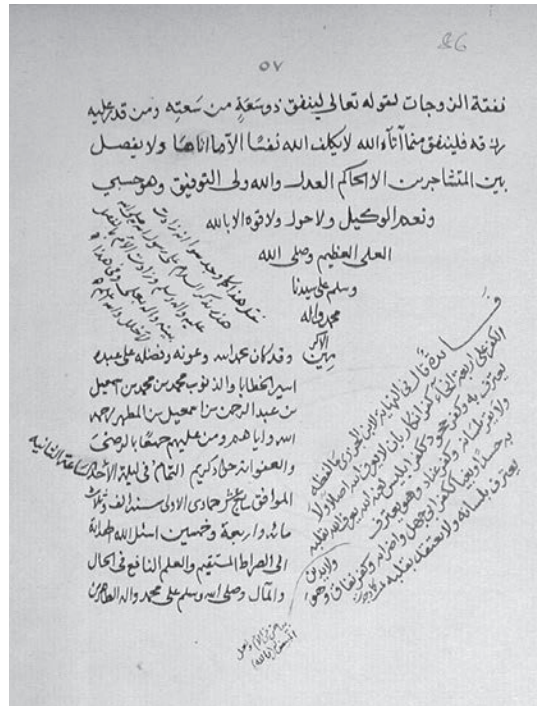 86
٥٧
نفقة الزوجات لقوله تعالى لينفق ذو سعةٍ من سَعَتِه ومن قدر عليه
رزقه فلينفق مما آتاه الله لا يكلف الله نفسًا الا ما اتاها ولا يفصل
بين المتشاجرين الا الحاكم العدل والله ولي التوفيق وهو حسبي
ونعم الوكيل ولا حول ولا قوة الا بالله
العلي العظيم وصلى الله
وسلم على سيدنا
محمد واله
الاكرمين
وقد كان بحمد الله وعونه وفضله على عبده
اسير الخطايا والذنوب محمد بن محمد بن اسمعيل
بن عبد الرحمن بن اسمعيل بن المطهر رحمهم
الله واياهم ومن عليهم جميعًا بالرضى
والعفو انه جواد كريم التمام في ليلة الأحد الساعة الثانية
الموافق شهر جمادى الاولى سنة الف وثلاث
مائة واربعة وخمسين اسئل الله الهداية
الى الصراط المستقيم والعلم النافع في الحال
والمآل وصلى الله وسلم على محمد واله الطاهرين
فائدة قال في النهاية لابن الجزري ما لفظه
الكفر على اربعة انحاء كفر انكار بان لا يعرف الله اصلا ولا
يعترف به وكفر جحود ككفر ابليس لعنه الله يعرف الله بقلبه
ولا يقر بلسانه وكفر عناد وهو يعترف
به حسدًا وبغيا ككفر ابي جهل واضرابه وكفر نفاق وهو
يعترف بلسانه ولا يعتقد بقلبه